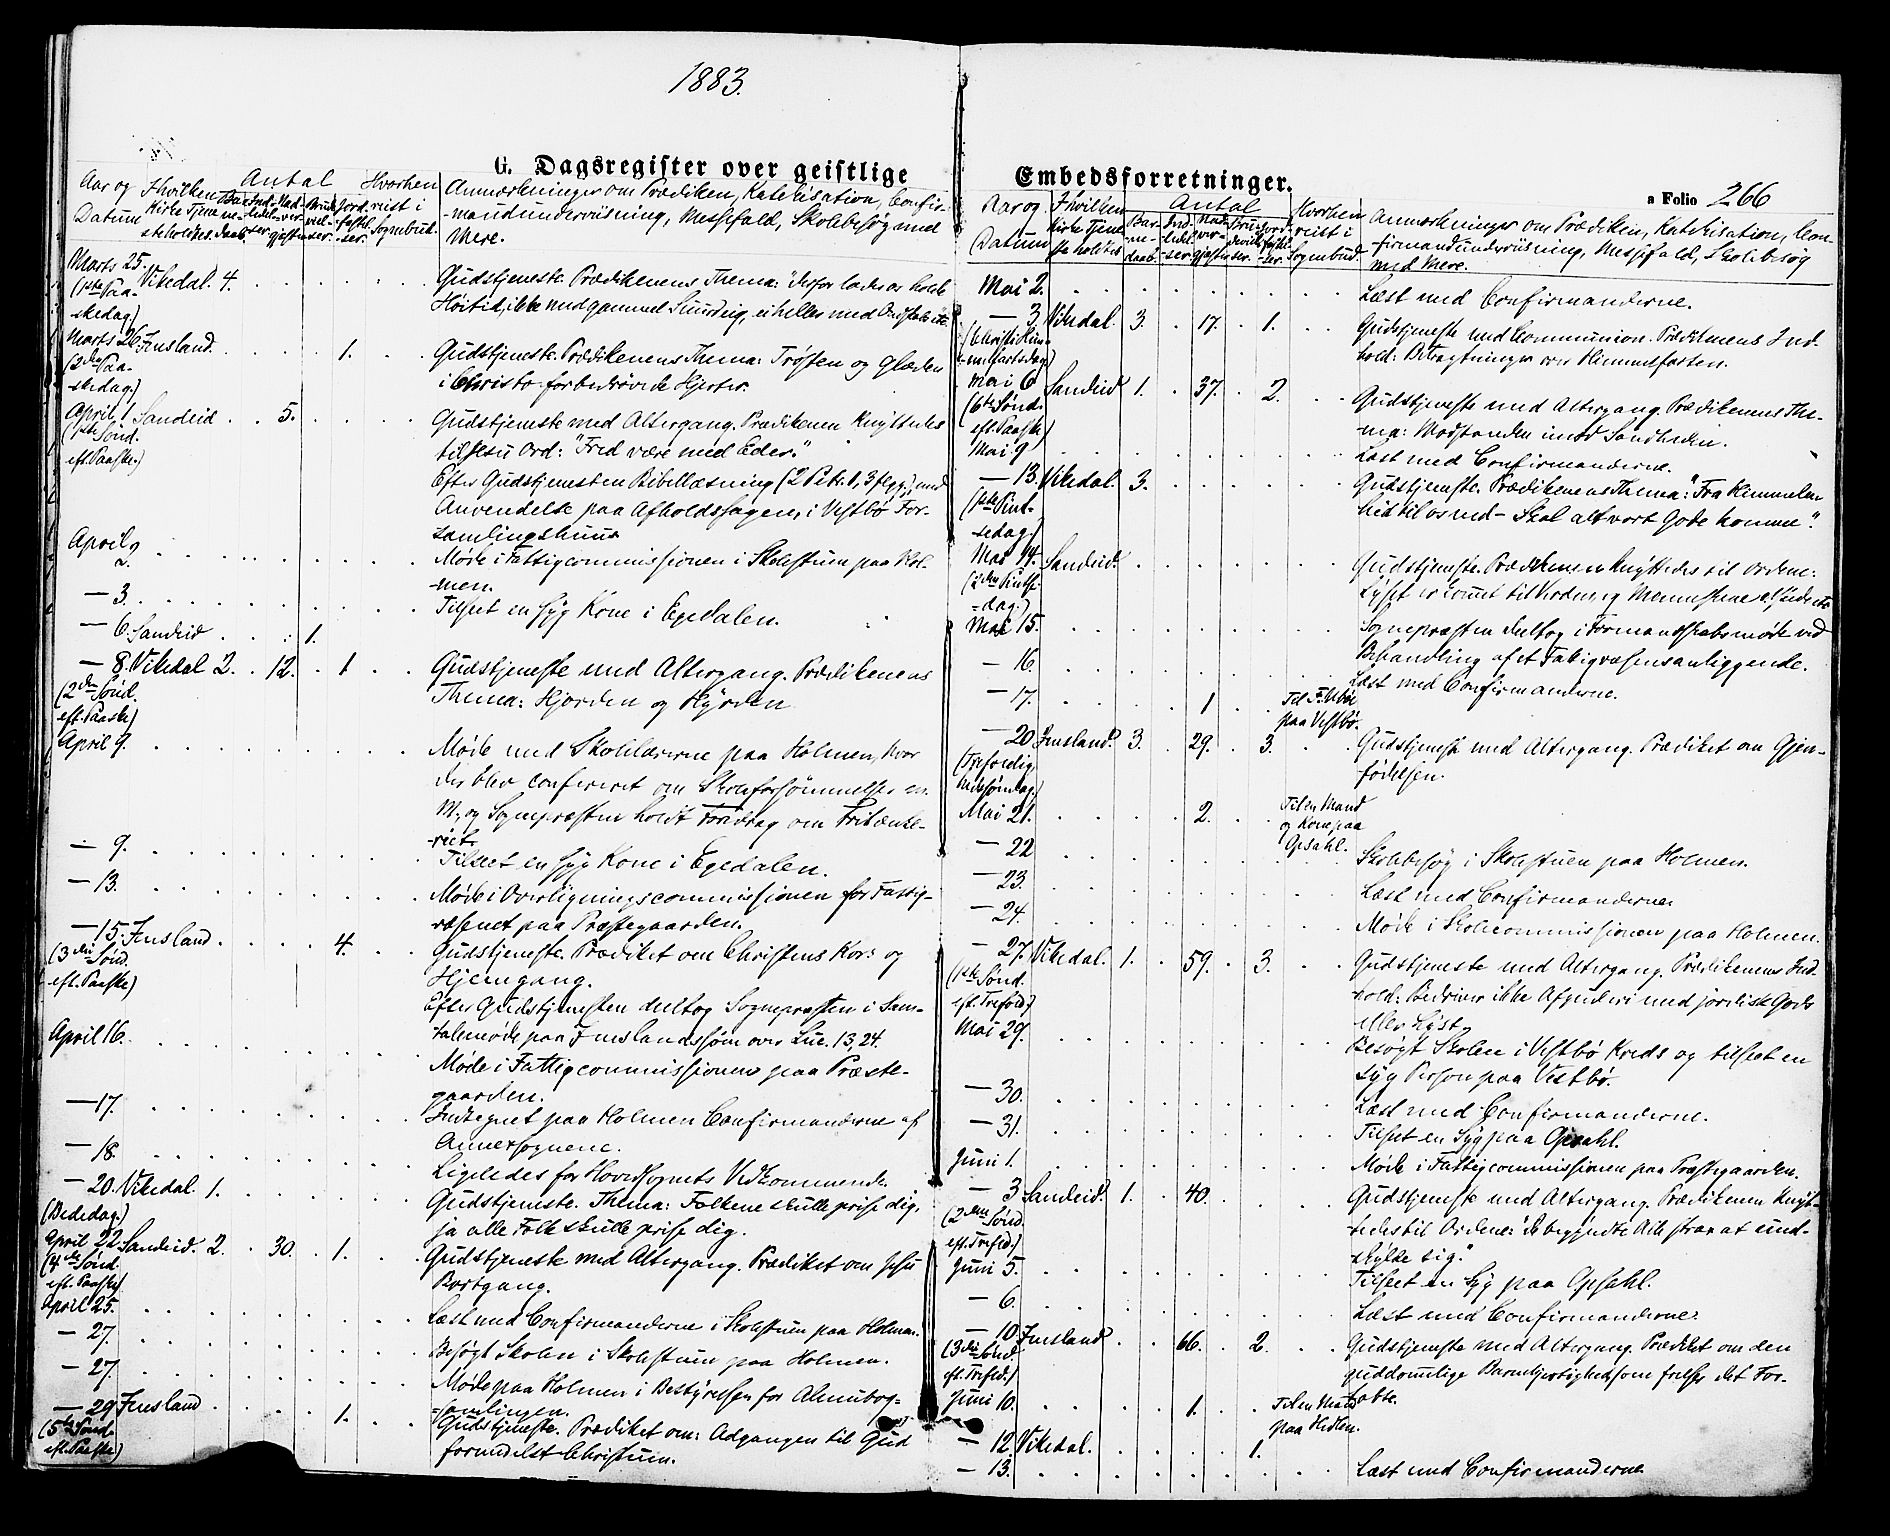 1883.
G. Dagsregister over geistlige
Aar og
Datum
Hvilken
Kirke Tjene
ste holdtes.
Antal
Hvorhen
reist i
Sognebud.
Anmærkninger om Prædiken, Katekisation, Confir-
-mandundervisning, Messefald, Skolebesøg med
Mere.
Marts 25. Vikedal. 4.
(1ste Paa-
skedag.)
Gudstjeneste. Prædikenens Thema: "derfor lader os holde
Høitid, ikke med gammel Suurdeig, ei heller med Ondskabs etc.
Marts 26. Imsland. 1.
(2den Paa-
skedag.)
Gudstjeneste. Prædikenens Thema: Trøsten og Glæden
i Christo for bedrøvede Hjerter.
April 1 Sandeid 5.
(1ste Sønd.
eft. Paaske.)
Gudstjeneste med Altergang. Prædikenen knyttedes
til Jesu Ord: "Fred være med Eder."
Efter Gudstjenesten Bibellæsning (2 Petr. 1, 3 flgg.), med
Anvendelse paa Afholdssagen, i Vestbø For-
samlingshuus
April 2.
Møde i Fattigcommissionen i Skolestuen paa Hol-
-men.
— 3.
Tilseet en syg Kone i Egedalen.
— 6. Sandeid 1.
— 8. Vikedal 2. 12. 1
(2den Sønd.
eft. Paaske)
Gudstjeneste med Altergang. Prædikenens
Thema: Hjorden og Hyrden
April 9.
Møde med Skolelærerne paa Holmen, hvor
der blev confereret om Skoleforsømmelser m.
M., og Sognepræsten holdt Foredrag om Fritænke-
-riet.
— 9.
Tilseet en syg Kone i Egedalen.
— 13.
Møde i Overligningscommissionen for Fattig-
væsenet paa Præstegaarden.
— 15. Imsland. 4.
(3die Sønd.
eft. Paaske)
Gudstjeneste. Prædiket om Christens Kors og
Hjemgang.
Efter Gudstjenesten deltog Sognepræsten i Sam-
talemøde paa Imslandssjøen over Luc. 13, 24.
April 16.
Møde i Fattigcommissionen paa Præste-
gaarden.
— 17.
Indtegnet paa Holmen Confirmanderne af
Annexsognene.
— 18.
Ligeledes for Hovedsognets Vedkommende.
— 20. Vikedal. 1.
(Bededag.)
Gudstjeneste. Thema: Folkene skulle prise dig,
ja alle Folk skulle prise dig.
April 22. Sandeid. 2. 30. 1.
(4de Sønd.
eft. Paaske)
Gudstjeneste med Altergang. Prædiket om Jesu
Bortgang.
April 25.
Læst med Confirmanderne i Skolestuen paa Holmen.
— 27.
Besøgt Skolen i Skolestuen paa Holmen.
— 27.
Møde paa Holmen i Bestyrelsen for Almuebog-
-samlingen.
— 29 Imsland 1.
(5te Sønd.
eft. Paaske)
Gudstjeneste. Prædiket om: Adgangen til Gud
formedelst Christum.
Embedsforretninger.
a Folio 266
Aar og
Datum
Hvilken
Kirke Tjene
ste holdtes
Antal
Hvorhen
reist i
Sognebud.
Anmærkninger om Prædiken, Katekisation, Con-
-firmandundervisning, Messefald, Skolebesøg
med Mere.
Mai 2.
Læst med Confirmanderne.
— 3. Vikedal. 3. 17. 1.
(Christi Him-
melfartsdag)
Gudstjeneste med Communion. Prædikenens Ind-
hold: Betragtninger over Himmelfarten.
Mai 6 Sandeid 1. 37. 2.
(6te Sønd.
eft. Paaske)
Gudstjeneste med Altergang. Prædikenens The-
-ma: Modstanden imod Sandheden.
Mai 9
Læst med Confirmanderne.
— 13. Vikedal. 3.
(1ste Pint-
sedag.)
Gudstjeneste. Prædikenens Thema: "Fra Himmelen
hid til os ned – Skal alt vort Gode komme."
Mai 14. Sandeid.
(2den Pintse
-dag.)
Gudstjeneste. Prædikenen knyttedes til Ordene:
Lyset er kommet til Verden og Menneskene elskede etc
Mai 15.
Sognepræsten deltog i Formandskabsmøde ved
Behandling af et Fattigvæsensanliggende.
— 16.
Læst med Confirmanderne.
— 17. 1
paa Vestbø.
— 20 Imsland. 3. 29. 3.
(Trefoldig
hedssøndag.)
Gudstjeneste med Altergang. Prædiket om Gjen-
fødelsen.
Mai 21. 2.
Til en Mand
og Kone paa
Opsahl.
— 22
Skolebesøg i Skolestuen paa Holmen.
— 23.
Læst med Confirmanderne
— 24.
Møde i Skolecommissionen paa Holmen.
— 27. Vikedal. 1. 59. 3.
(1ste Sønd.
eft. Trefold.)
Gudstjeneste med Altergang. Prædikenens Ind-
hold: Bedriver ikke Afguderi med jordisk Gods
eller Lyst.
Mai 29.
Besøgt Skolen i Vestbø Kreds og tilseet en
syg Person paa Vestbø.
— 30.
Læst med Confirmanderne.
— 31.
Tilseet en Syg paa Opsahl.
Juni 1.
Møde i Fattigcommissionen paa Præstegaarden.
— 3 Sandeid. 1. 40.
(2den Sønd.
eft. Trefld.)
Gudstjeneste med Altergang. Prædikenen knyt-
tedes til Ordene: "de begyndte Alle strax at und-
skylde sig."
Juni 5.
Tilseet en Syg paa Opsahl.
— 6.
Læst med Confirmanderne.
— 10. Imsland 66. 2.
(3die Sønd.
eft. Trefld.)
Gudstjeneste med Altergang. Prædiket om den
guddommelige Barmhjertighed som frelser det For-
tabte.
Juni 10. 1.
Til en Mand
paa Hidlen.
— 12. Vikedal. 1.
— 13.
Læst med Confirmanderne